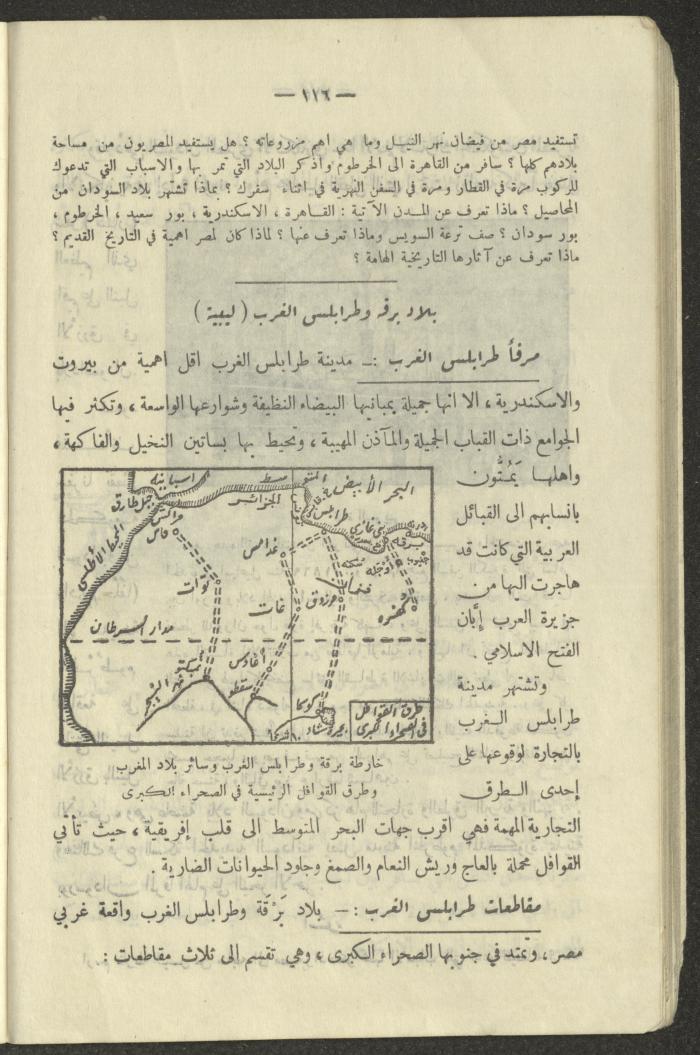 — ١١٦ —
تستفيد مصر من فيضان نهر النيل وما هي اهم مزروعاته ؟ هل يستفيد المصريون من مساحة
بلادهم كلها ؟ سافر من القاهرة الى الخرطوم واذكر البلاد التي تمر بها والاسباب التي تدعوك
للركوب مرة في القطار ومرة في السفن النهرية في اثناء سفرك ؟ بماذا تشتهر بلاد السودان من
المحاصيل ؟ ماذا تعرف عن المدن الآتية : القاهرة ، الاسكندرية ، بور سعيد ، الخرطوم ،
بور سودان ؟ صف ترعة السويس وماذا تعرف عنها ؟ لماذا كان لمصر اهمية في التاريخ القديم ؟
ماذا تعرف عن آثارها التاريخية الهامة ؟
بلاد برقه وطرابلس الغرب ( ليبية )
مرفأ طرابلس الغرب :— مدينة طرابلس الغرب اقل اهمية من بيروت
والاسكندرية ، الا انها جميلة بمبانيها البيضاء النظيفة وشوارعها الواسعة ، وتكثر فيها
الجوامع ذات القباب الجميلة والمآذن المهيبة ، وتحيط بها بساتين النخيل والفاكهة ،
واهلها يَمُتُّون
بانسابهم الى القبائل
العربية التي كانت قد
هاجرت اليها من
جزيرة العرب إِبَّان
الفتح الاسلامي .
وتشتهر مدينة
طرابلس الغرب
بالتجارة لوقوعها على
إحدى الطرق
البحر الأبيض المتوسط
اسبانيه
جبل طارق
الجزائر
مراكش
فاس
المحيط الأطلسي
طرابلس
بني غازي
برقه
غدامس
توات
أوجله
فزان
مرزوق
غات
كفره
مدار السرطان
أغادس
تمبكتو
نهر النيجر
سقطو
كوكا
بحيرة تشاد
طرق القوافل
في الصحراء الكبرى
خارطة برقة وطرابلس الغرب وسائر بلاد المغرب
وطرق القوافل الرئيسية في الصحراء الكبرى
التجارية المهمة فهي اقرب جهات البحر المتوسط الى قلب إفريقية ، حيث تأتي
القوافل محملة بالعاج وريش النعام والصمغ وجلود الحيوانات الضارية .
مقاطعات طرابلس الغرب :— بلاد بَرْقَة وطرابلس الغرب واقعة غربي
مصر ، وتمتد في جنوبها الصحراء الكبرى ، وهي تقسم الى ثلاث مقاطعات :